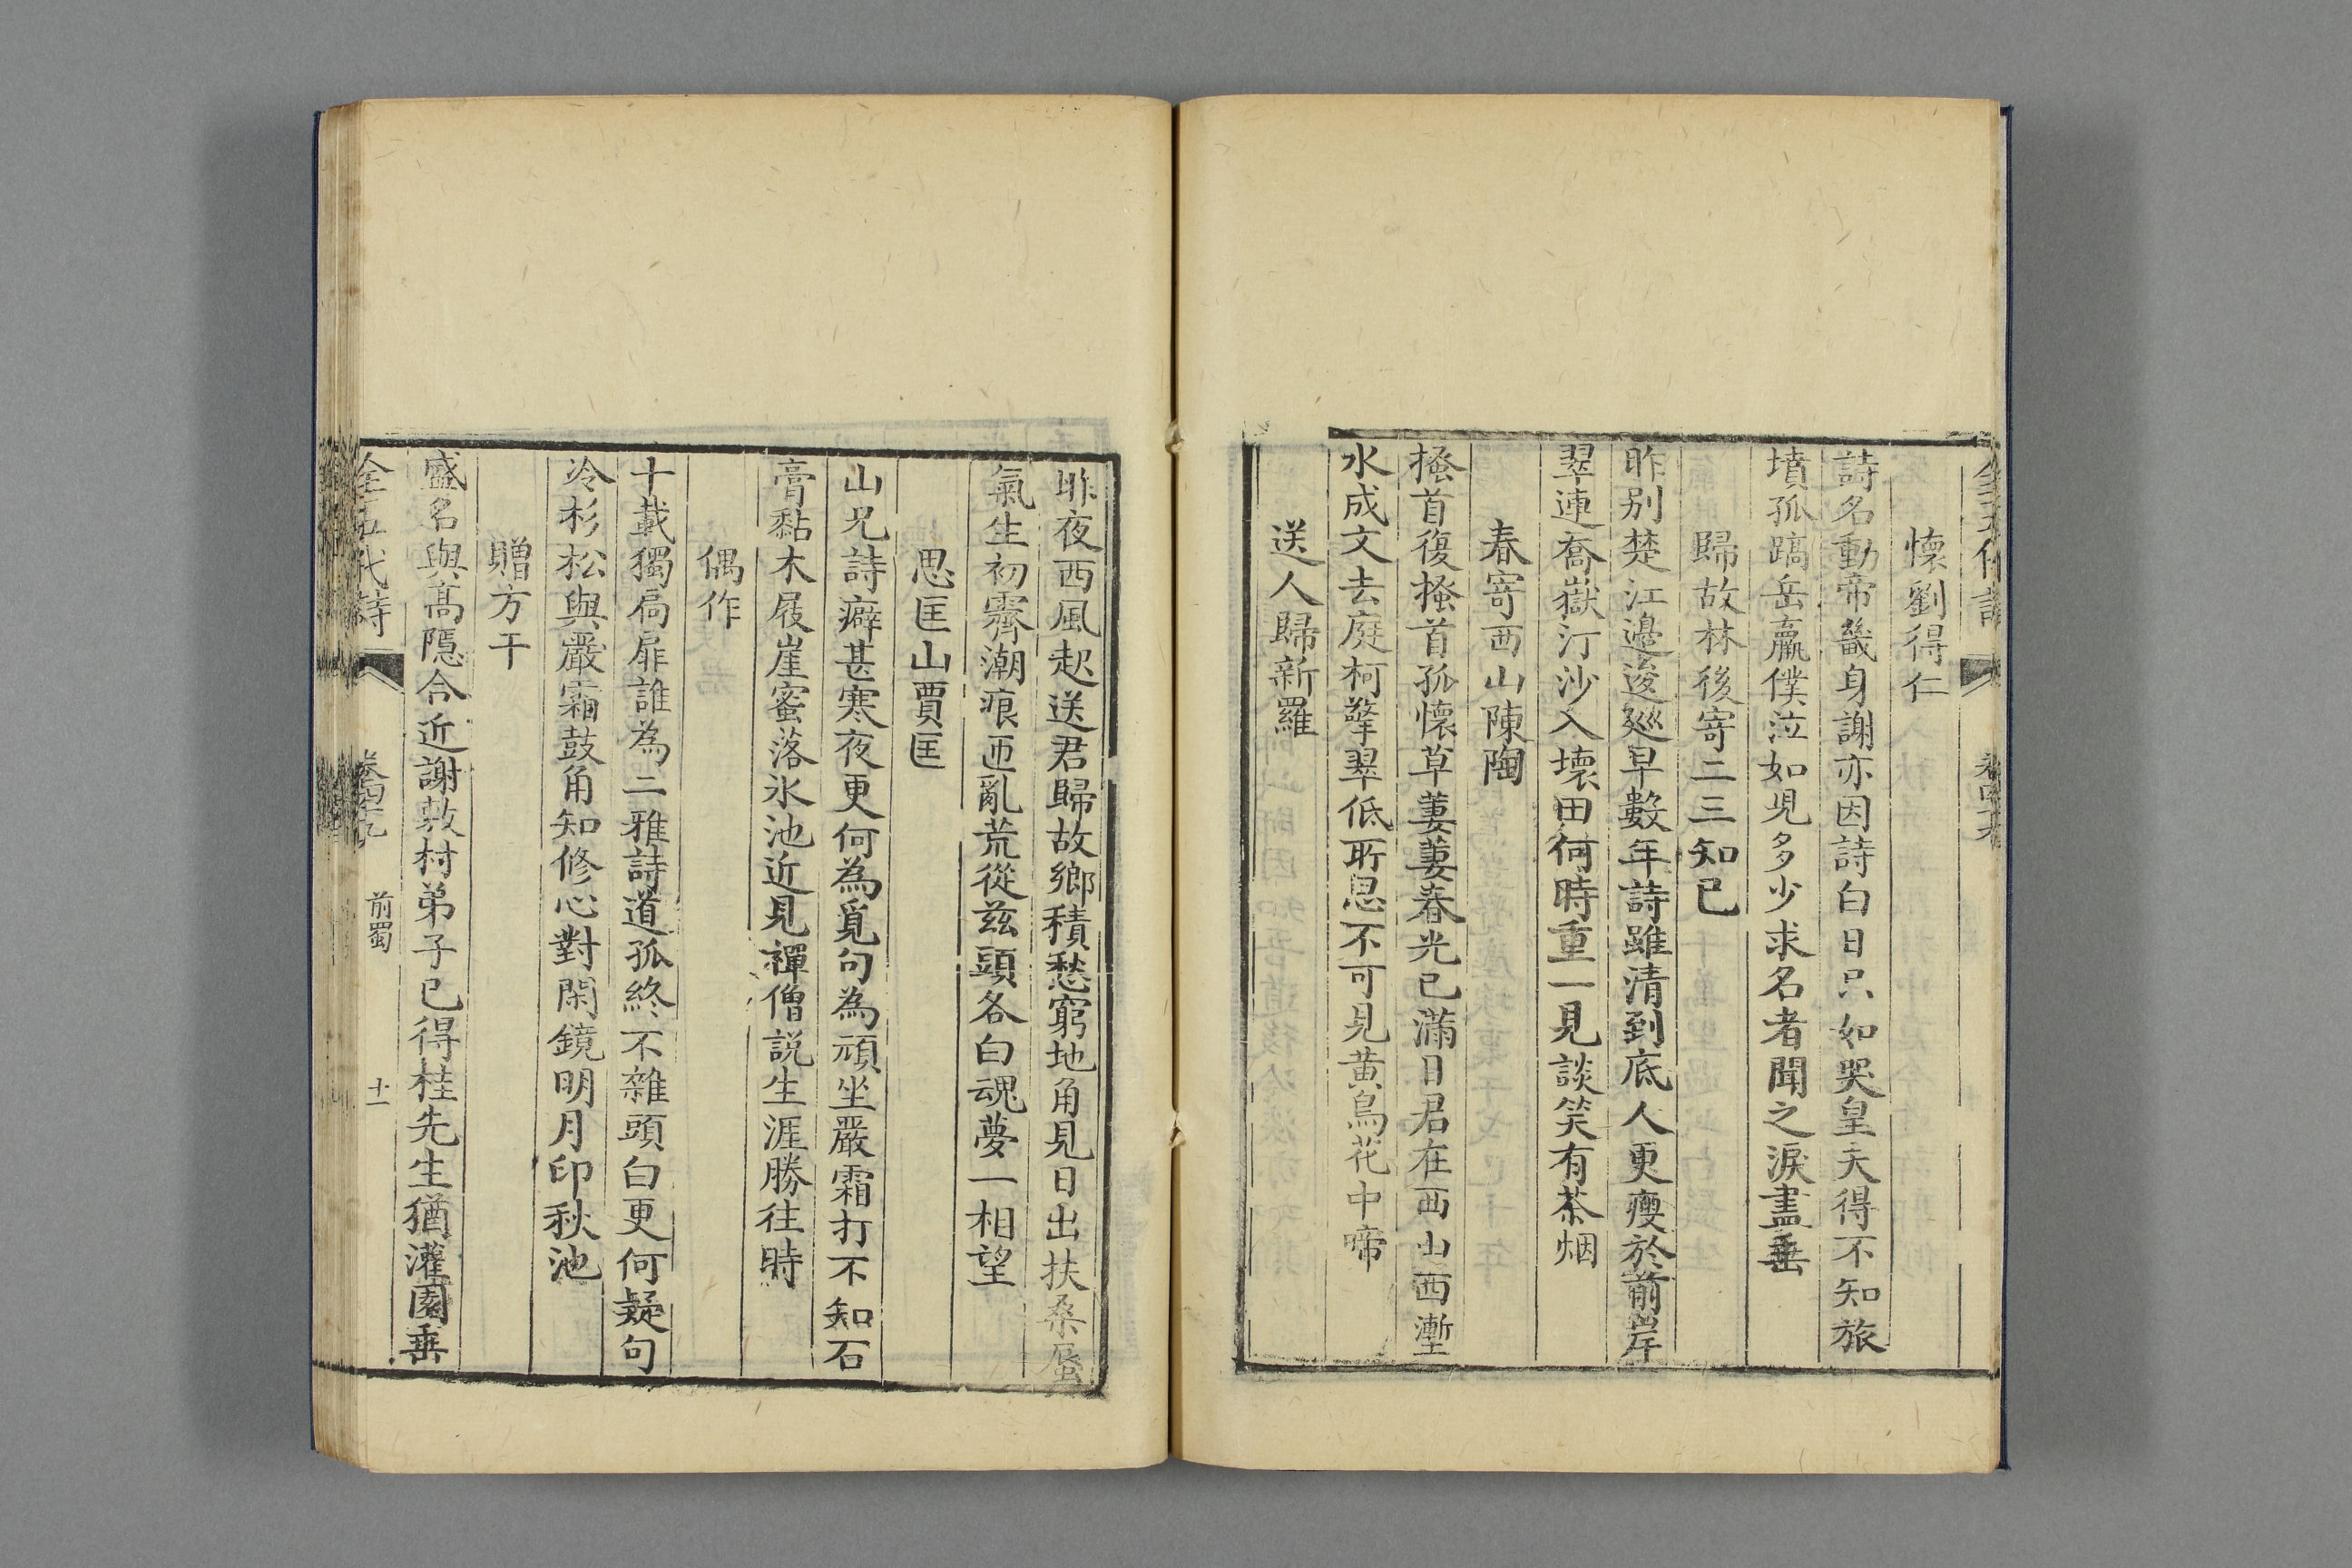 懷劉得仁
詩名動帝畿身謝亦因詩白日只如哭皇天得不知旅
墳孤蹋岳羸僕泣如児多少求名者聞之淚盡垂
歸故林後寄二三知已
昨别楚江邊逡廵早數年詩雖清到底人更瘦於前岸
翠連喬嶽汀沙入壊田何時重一見談笑有茶烟
春寄西山陳陶
搔首復搔首孤懷草萋萋春光已滿日君在西山西塹
水成文去庭柯擎翠低所思不可見黄鳥花中啼
送人歸新羅
昨夜西風起送君歸故鄉積愁窮地角見日出扶桑蜃
氣生初霽潮痕匝亂荒從兹頭各白魂夢一相望
思匡山賈匡
山兄詩癖甚寒夜更何為覓句為頑坐嚴霜打不知石
膏黏木屐崖蜜落氷池近見禪僧説生涯勝往時
偶作
十載獨扃扉誰為二雅詩道孤終不雜頭白更何疑句
冷杉松與嚴霜鼓角知修心對閑鏡明月印秋池
贈方干
盛名與髙隱合近謝敷村弟子已得桂先生猶灌園垂
全五代詩
卷四十九
前蜀
十一